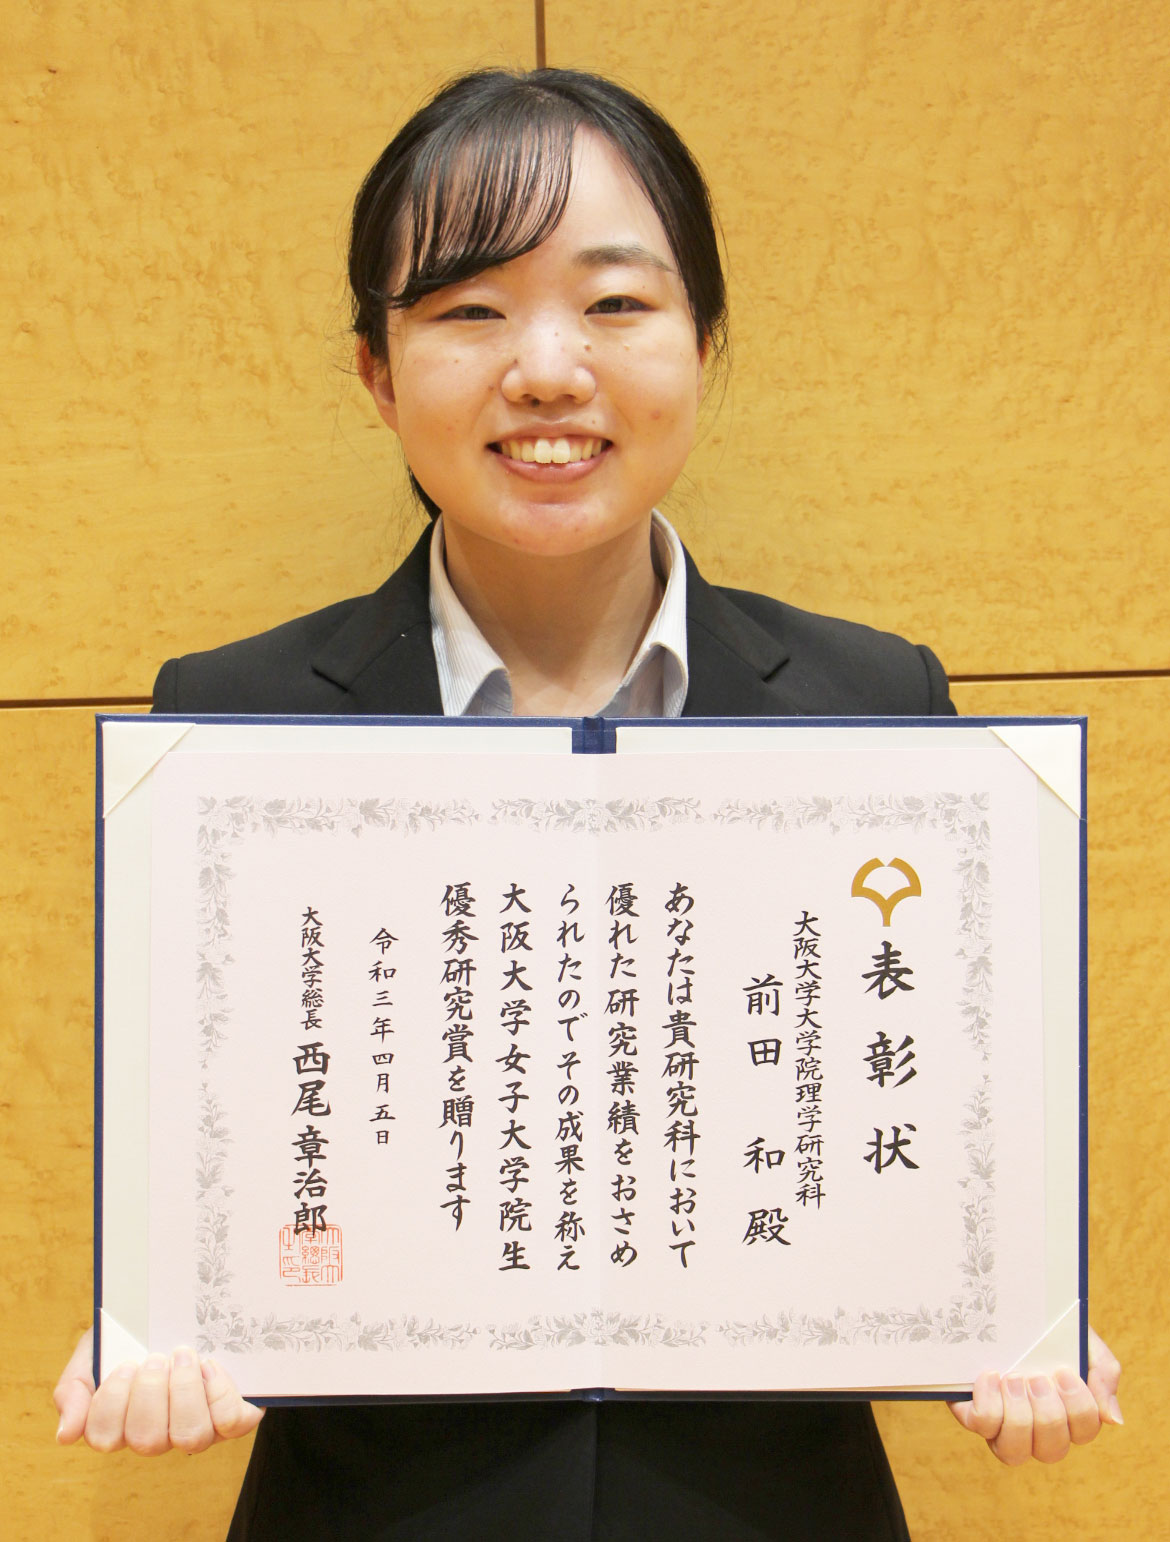 表彰状
大阪大学大学院理学研究科
前田 和 殿
あなたは貴研究科において
優れた研究業績をおさめ
られたのでその成果を称え
大阪大学女子大学院生
優秀研究賞を贈ります
令和三年四月五日
大阪大学総長 西尾章治郎